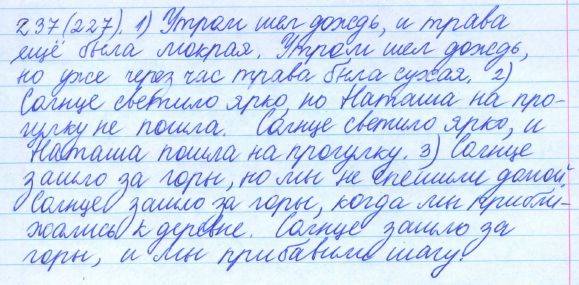 237(227). 1) Утром шёл дождь, и трава
ещё была мокрая. Утром шел дождь,
но уже через час трава была сухая. 2)
Солнце светило ярко, но Наташа на про-
гулку не пошла. Солнце светило ярко, и
Наташа пошла на прогулку. 3) Солнце
зашло за горы, но мы не спешили домой.
Солнце зашло за горы, когда мы прибли-
жались к деревне. Солнце зашло за
горы, и мы прибавили шагу.